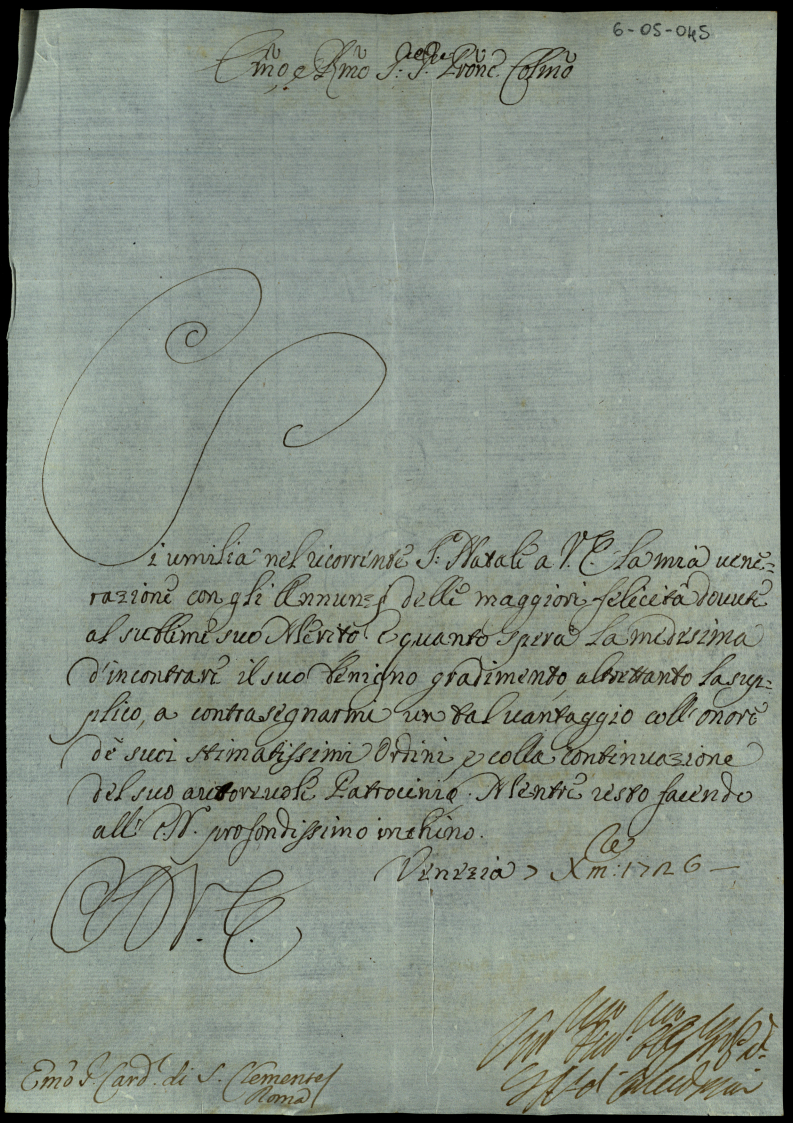 6-05-045
Emo e Rmo Sig.r Sig.r Prone Colmo
Si umilia nel ricorrente S. Natale a V. E. la mia vene-
razione con gli Annunzj delle maggiori felicità dovute
al sublime suo Merito. E quanto spera la medesima
d'incontrare il suo benigno gradimento, altrettanto la sup-
plico, a contrasegnarmi un tal vantaggio coll'onore
de suoi stimatissimi Ordini, e colla continuazione
del suo autorevole Patrocinio. Mentre resto facendo
all' E.V. profondissimo inchino.
Venezia 7 Xm.bre 1726
D V. E.
Emo S. Card.l di S. Clemente
Roma